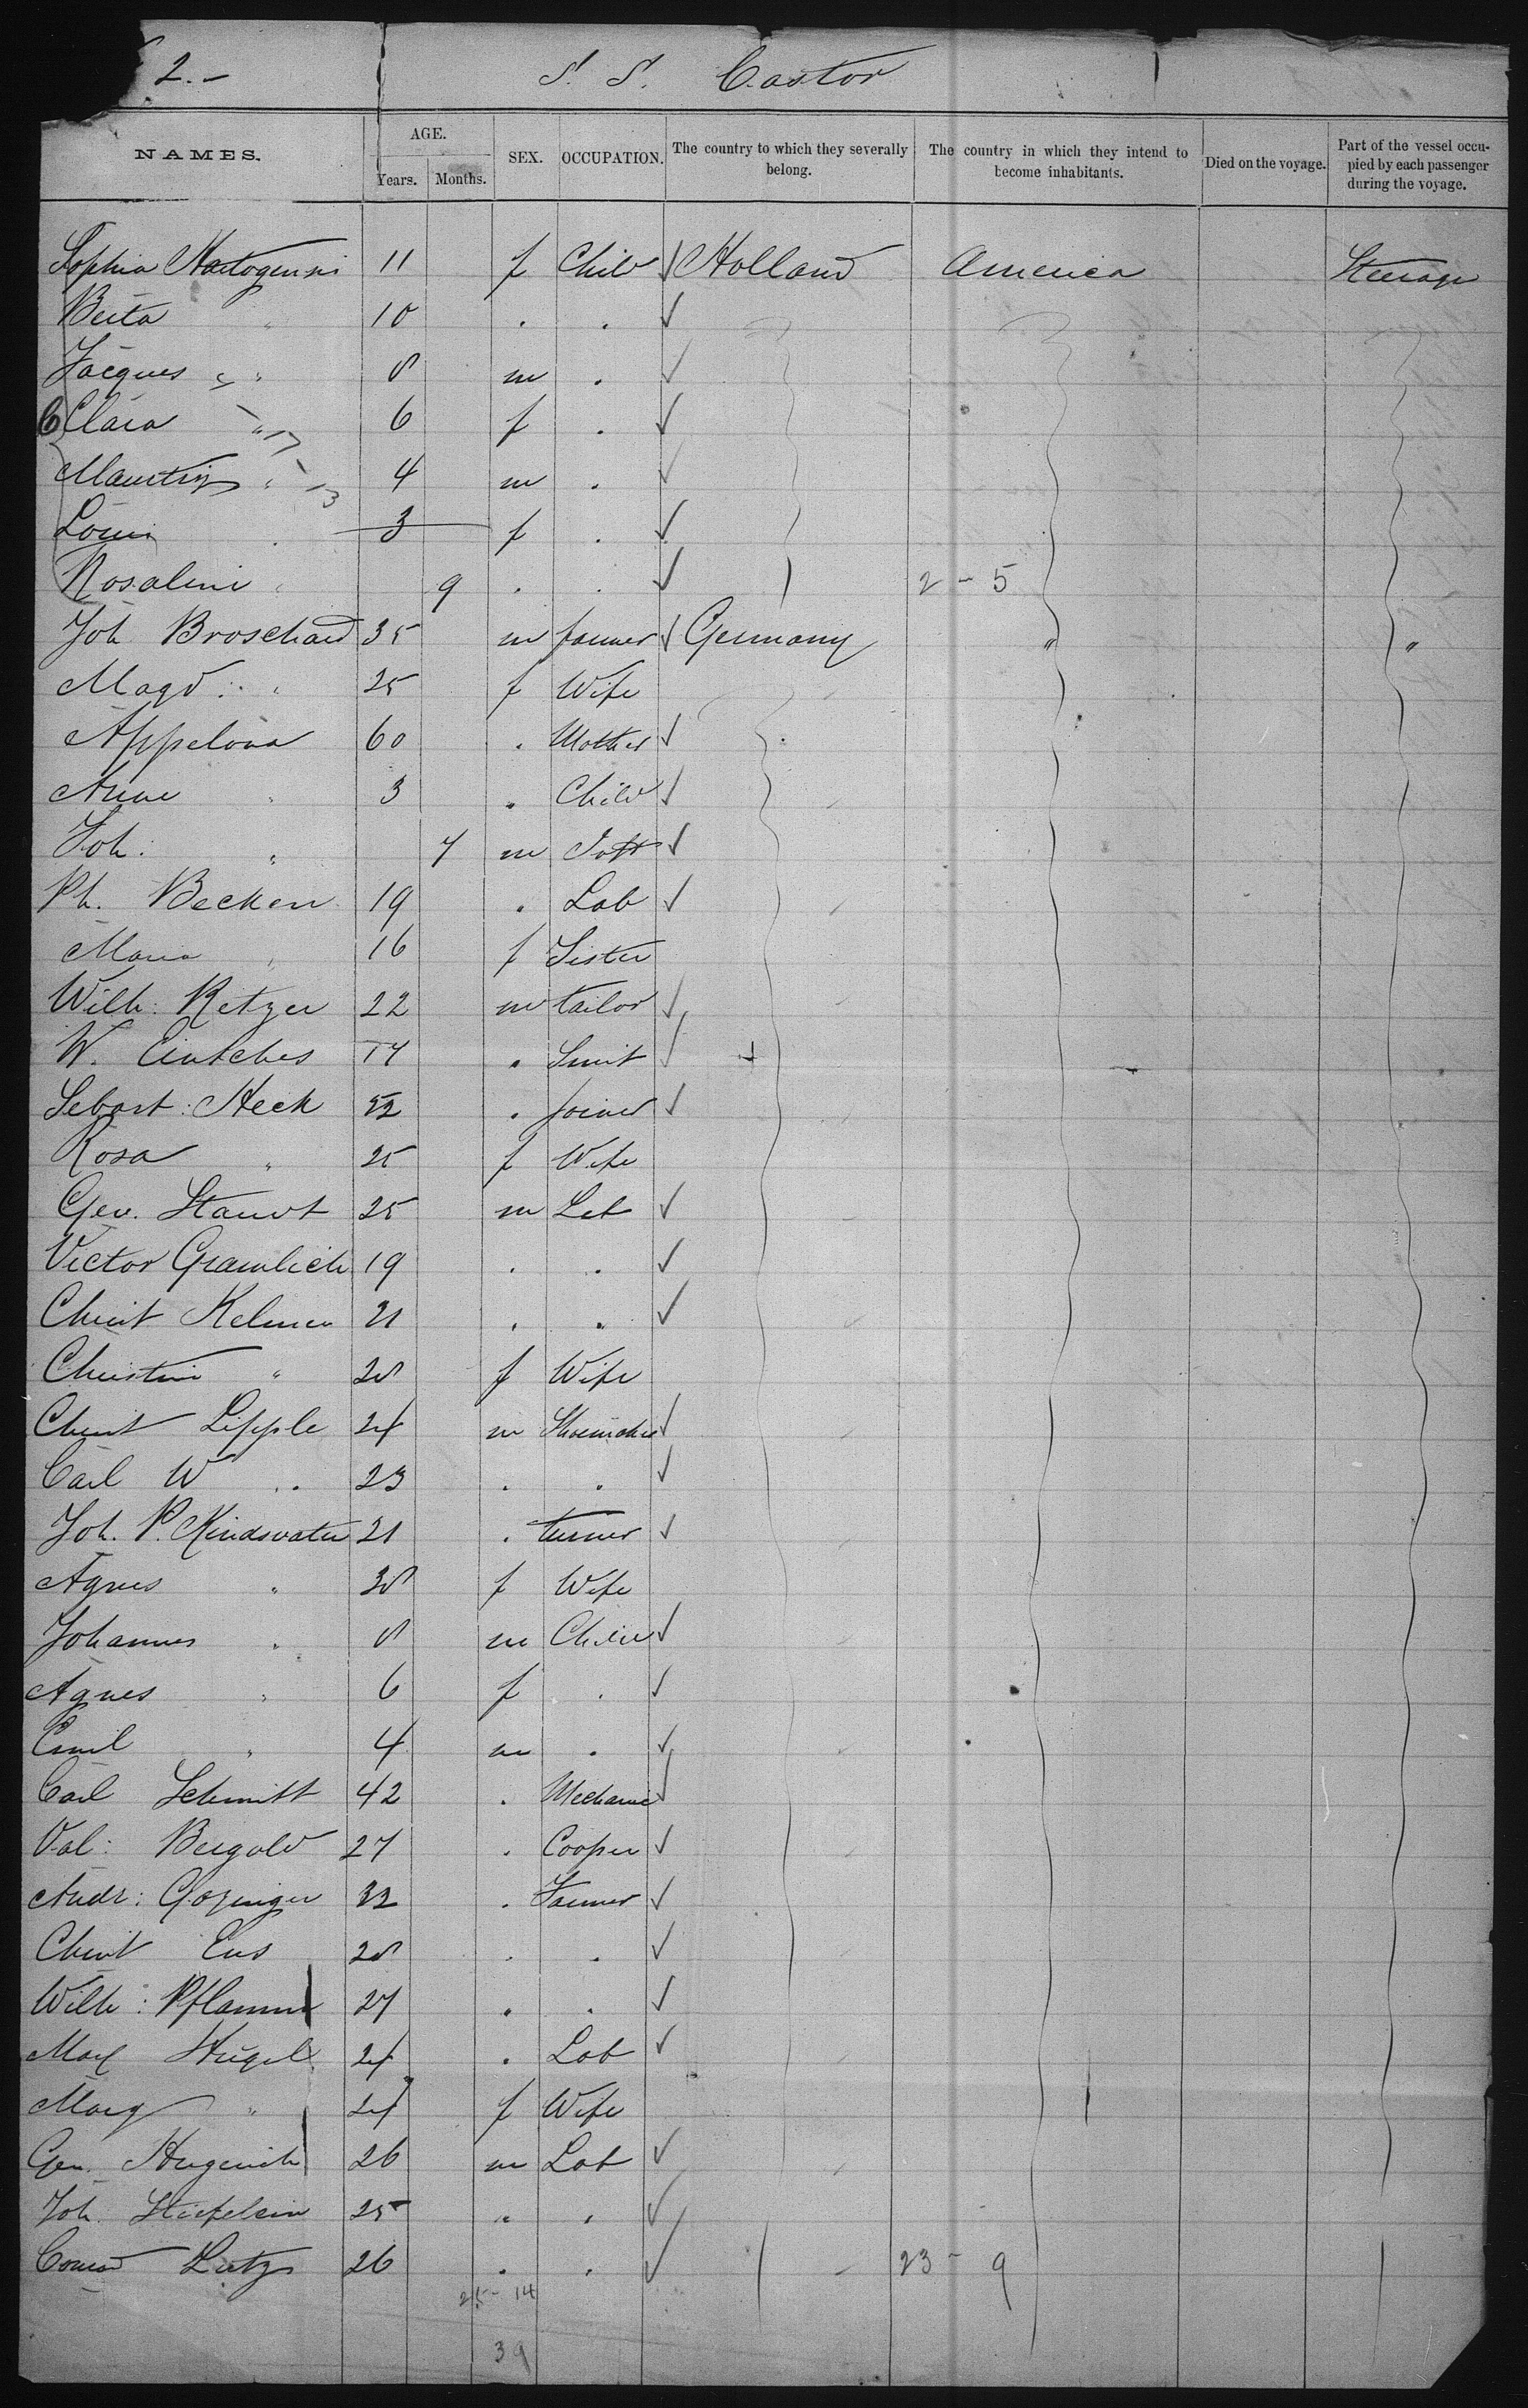 2.- S. S. Castor
NAMES. AGE. Years. Months. SEX. OCCUPATION. The country to which they severally belong. The country in which they intend to become inhabitants. Died on the voyage. Part of the vessel occupied by each passenger during the voyage.
Sophia 11 f Child Holland America Steerage
Berta " 10 . .
Jacques " 8 m .
Clara " 6 f .
4 m .
3 f .
9 . . 2 - 5
Joh. Broschard 35 m farmer Germany " "
Magd: " 25 f Wife
60 . Mother
Anne " 3 . Child
Joh: " 7 m
Ph. Becker 19 . Lab
Maria " 16 f Sister
Wilh: Retzer 22 m tailor
W. . Smit
Sebast: Heck . joiner
Rosa " 25 f Wife
Geo. Staudt 25 m Lab
Victor Gramlich 19 . .
Christ 21 . .
Christine " 28 f Wife
Christ Lipple 24 m Shoemaker
Carl W " 23 . .
Joh. P. Kindsvater 31 . turner
Agnes " 38 f Wife
Johannes " 8 m Child
Agnes " 6 f .
Emil " 4 m .
Carl Schmitt 42 . Mechanic
Val: Bergold 27 . Cooper
Andr: 32 . Farmer
Christ 28 . .
Wilh: Pflamm 27 . .
Max Hügel 24 . Lab
Marg " 24 f Wife
Geo. 26 m Lab
Joh. 25 " .
Conrad Lutz 26 . . 23 - 9
25 - 14
39